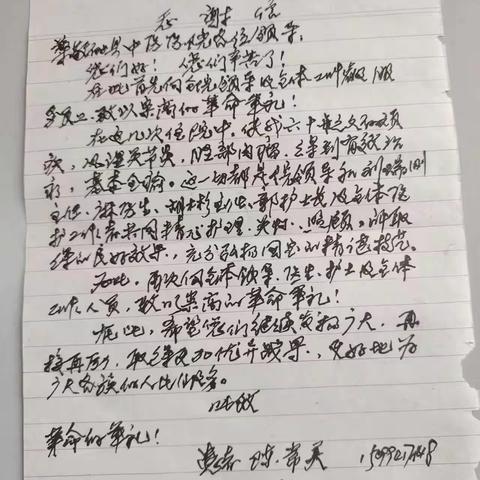 感谢信
尊敬的县中医院院各位领导:
您们好!您们辛苦了!
在此首先向医院领导及全体工作人员
致以崇高的革命军礼!
在这几次住院中,使我六十年之久的顽
疾,风湿关节炎,等到有效治
疗,基本全愈。这一切都是院领导和刘瑞刚
主任、医生、护士长及全体医
护工作者共同精心护理、关怀、照顾,所取
得的良好效果,充分弘扬国宝的精湛技艺。
为此,再次向全体领导、医生、护士及全体
工作人员,致以崇高的革命军礼!
在此,希望您们继续发扬广大,再
接再厉,取得更加优异成果,更好地为
广大各族的人民服务。
此致
革命的军礼!
患者 陈常美